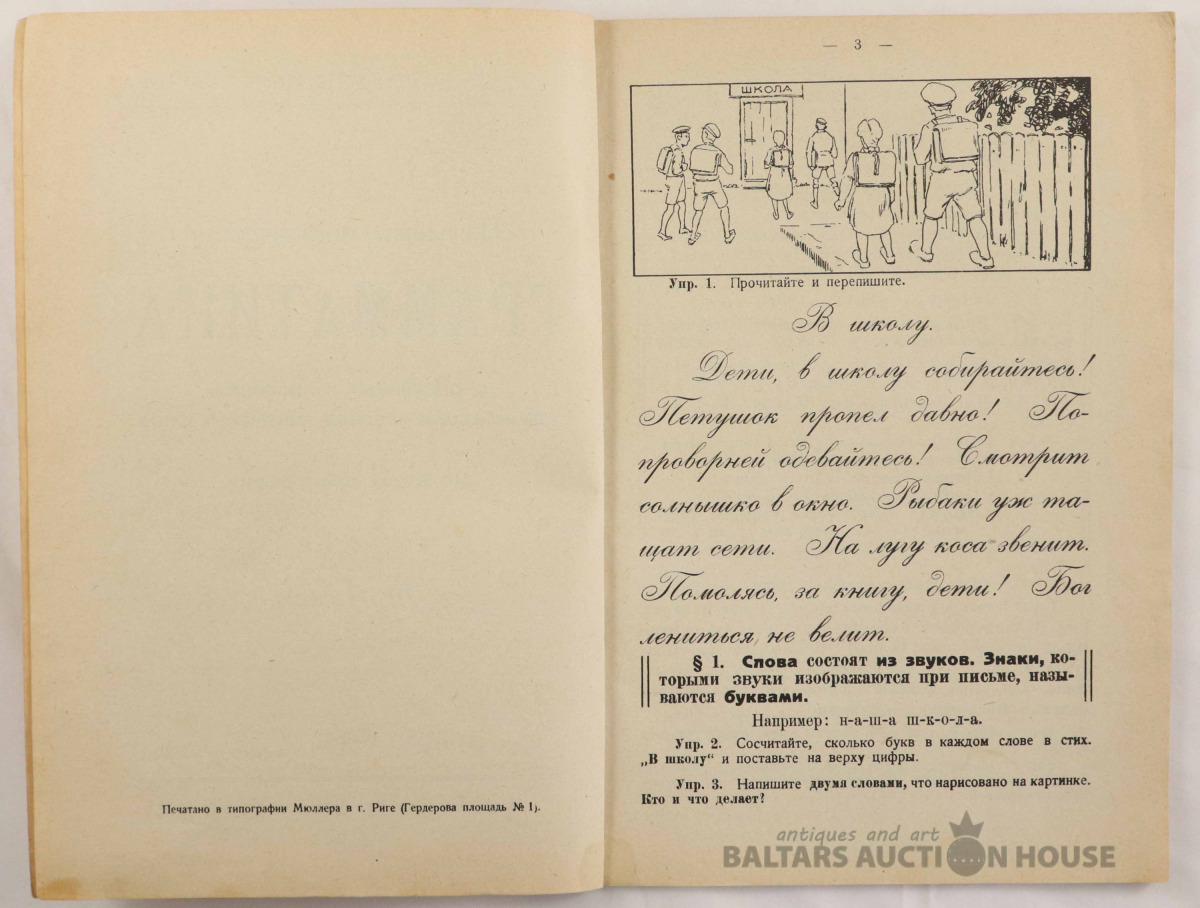 Печатано в типографии Мюллера в г. Риге (Гердерова площадь № 1).
— 3 —
ШКОЛА
Упр. 1. Прочитайте и перепишите.
В школу.
Дети, в школу собирайтесь!
Петушок пропел давно! По-
проворней одевайтесь! Смотрит
солнышко в окно. Рыбаки уж та-
щат сети. На лугу коса звенит.
Помолясь, за книгу, дети! Бог
лениться не велит.
§ 1. Слова состоят из звуков. Знаки, ко-
торыми звуки изображаются при письме, назы-
ваются буквами.
Например: н-а-ш-а ш-к-о-л-а.
Упр. 2. Сосчитайте, сколько букв в каждом слове в стих.
„В школу“ и поставьте на верху цифры.
Упр. 3. Напишите двумя словами, что нарисовано на картинке.
Кто и что делает?
antiques and art
BALTARS AUCTION HOUSE